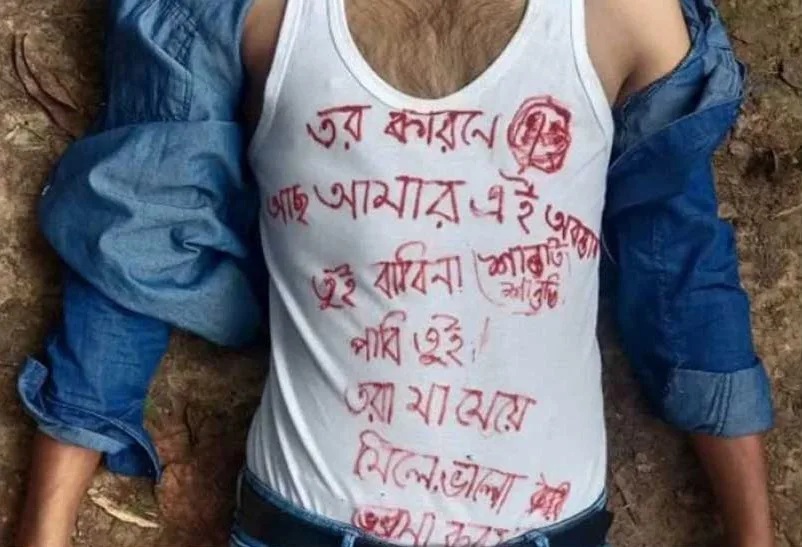 তর কারনে
আছ আমার এই অবস্তা
তুই বাবিনা শান্তি
শাস্তি
পাবি তুই।
তরা মা মেয়ে
মিলে ভালা